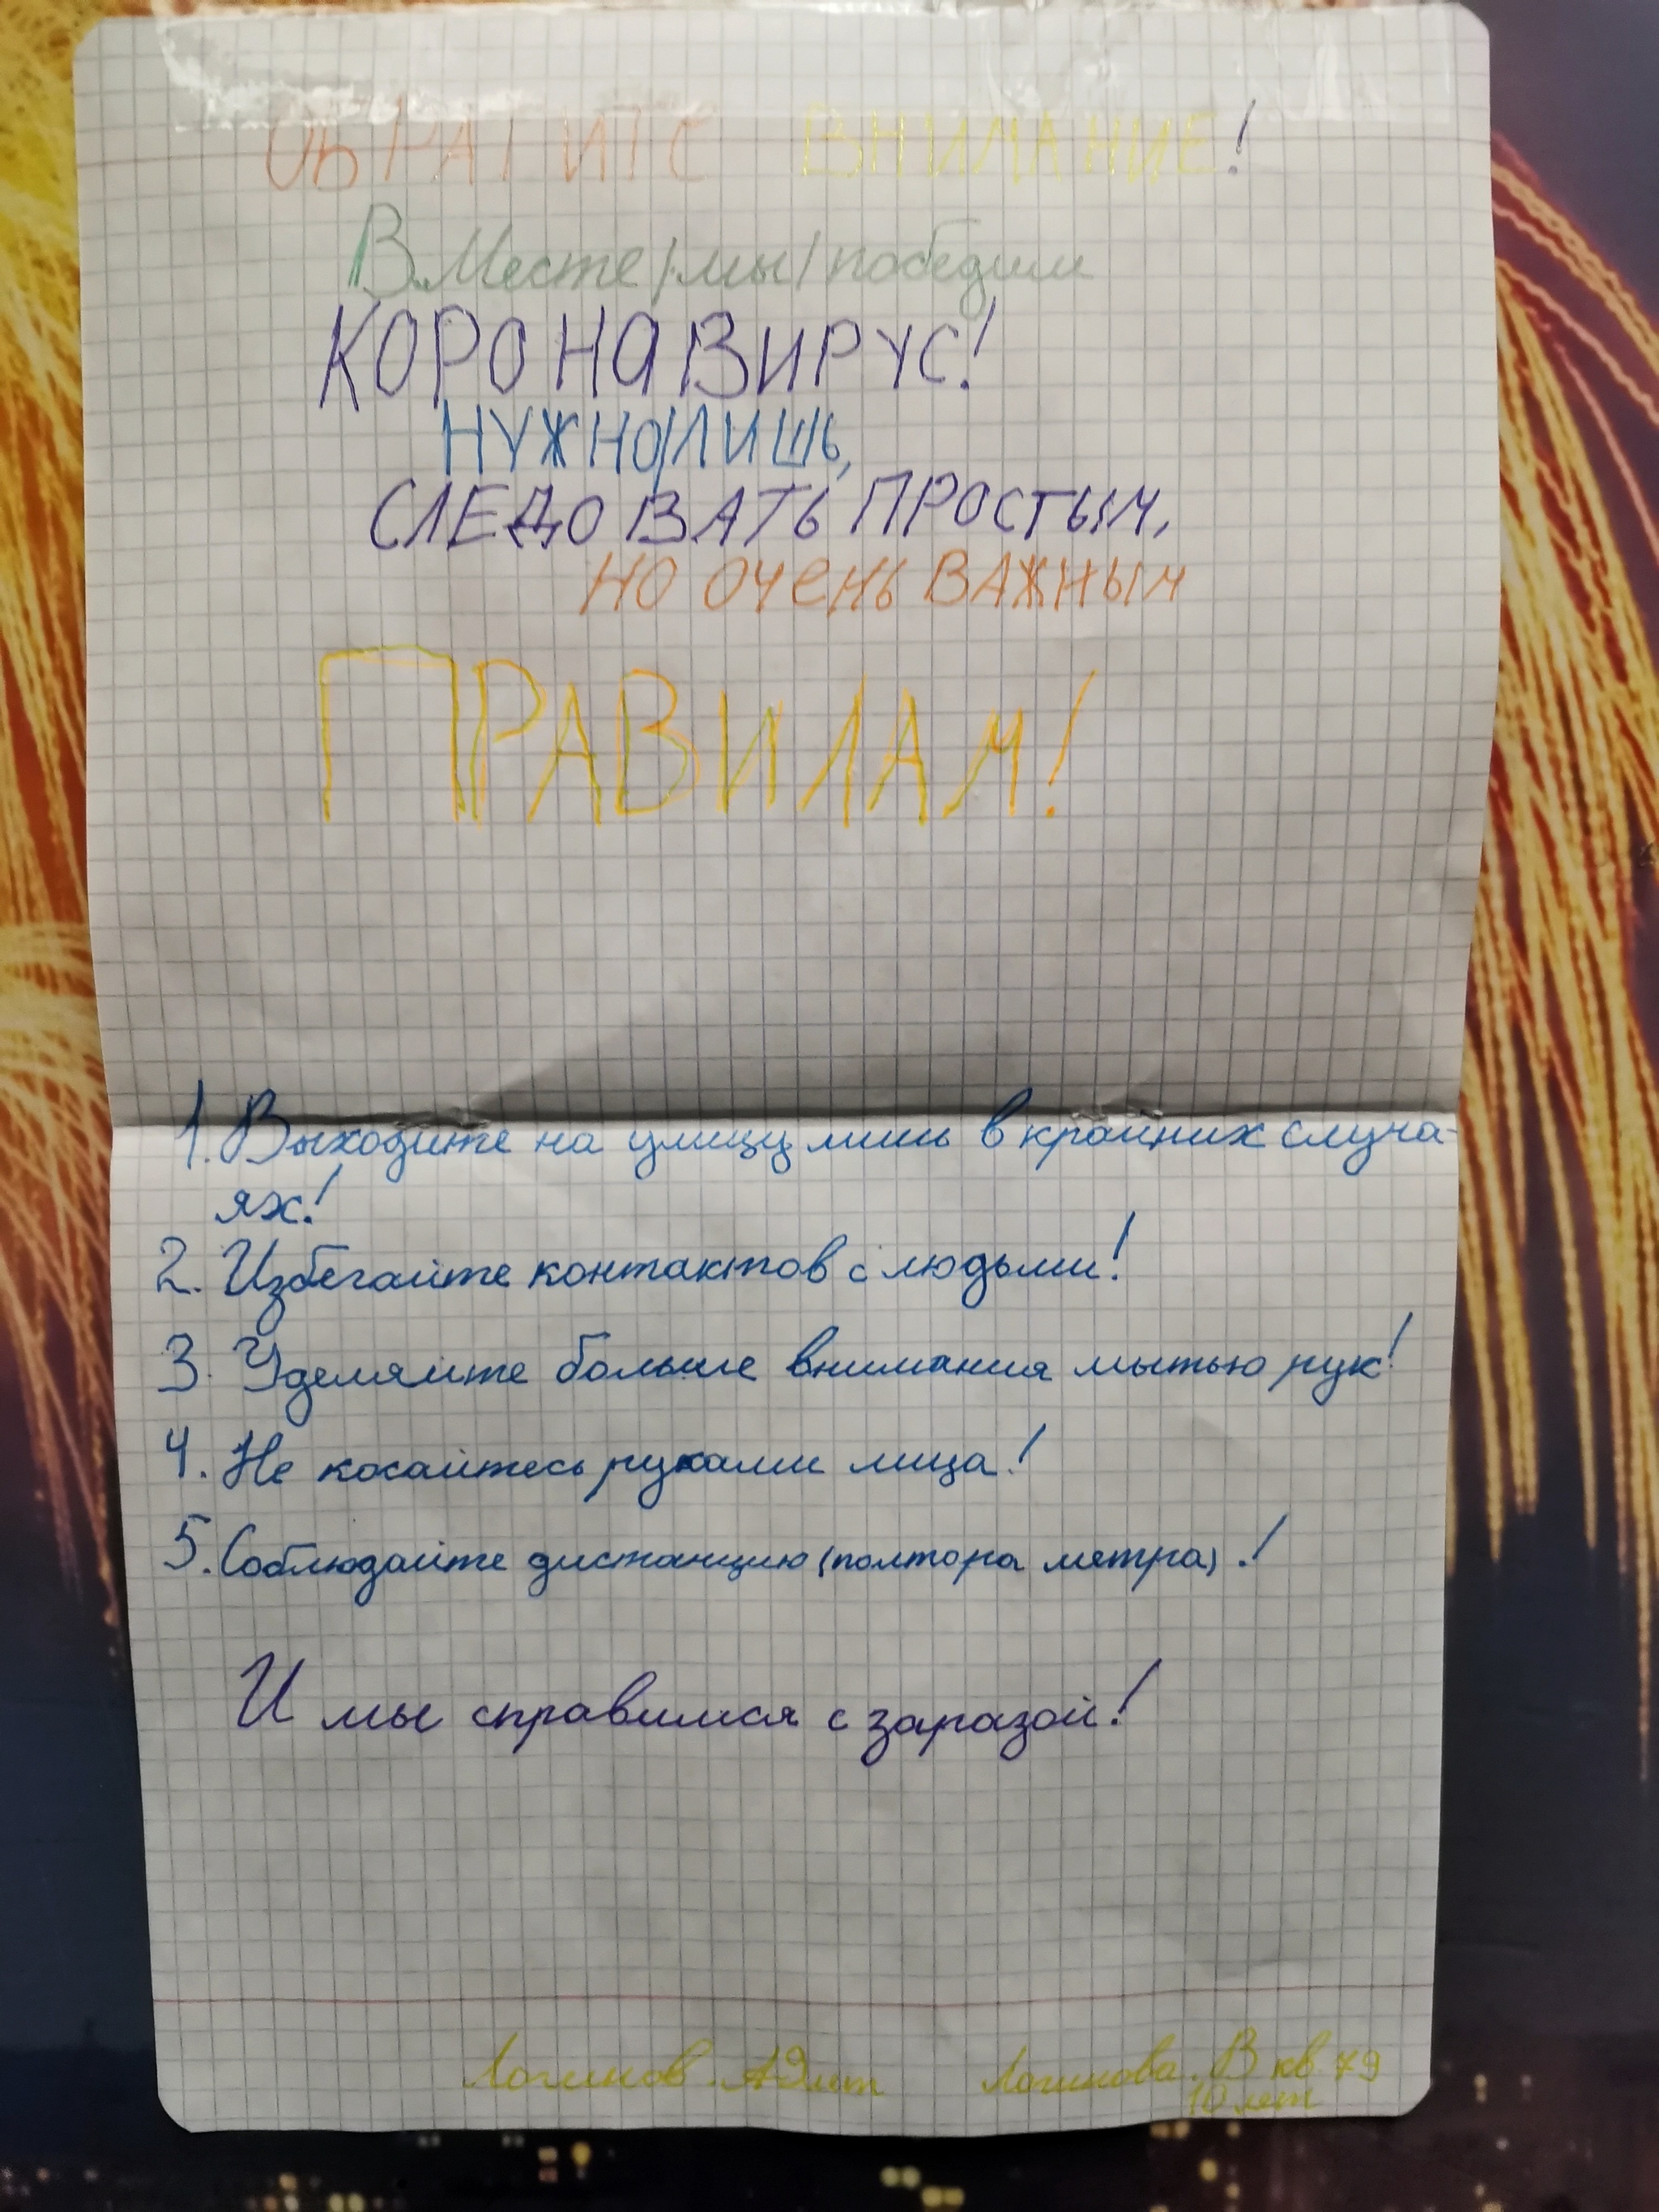 ОБРАТИТЕ ВНИМАНИЕ!
ВМесте/мы/победим
КОРОНАВИРУС!
НУЖНО/ЛИШЬ,
СЛЕДОВАТЬ ПРОСТЫМ,
НО ОЧЕНЬ ВАЖНЫМ
ПРАВИЛАМ!
1. Выходите на улицу лишь в крайних случа-
ях!
2. Избегайте контактов с людьми!
3. Уделяйте больше внимания мытью рук!
4. Не касайтесь руками лица!
5. Соблюдайте дистанцию (полтора метра).!
И мы справимся с заразой!
Логинов. А 9 лет Логинова. В кв. 79
10 лет